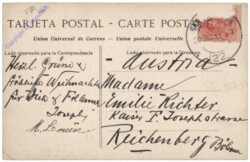 TARJETA POSTAL - CARTE POSTALE
Union Universal de Correos - Union postale Universelle
Lado reservado para la Correspondencia
Lado reservado para la Dirección
Austria
Herzl. Grüsse &
fröhliche Weihnachten
für Dich &
Joseph
M. Louise
Madame
Emilie Richter
Kaiser F. Josephstrasse
Reichenberg